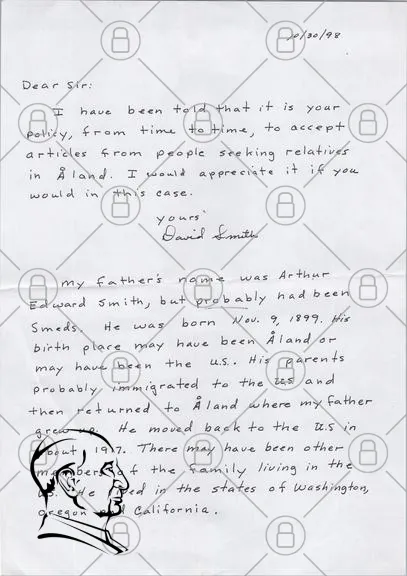 10/30/98
Dear Sir:
I have been told that it is your
policy, from time to time, to accept
articles from people seeking relatives
in Åland. I would appreciate it if you
would in this case.
yours
David Smith
my father's name was Arthur
Edward Smith, but probably had been
Smeds. He was born Nov. 9, 1899. His
birth place may have been Åland or
may have been the U.S.. His parents
probably immigrated to the U.S and
then returned to Åland where my father
grew up. He moved back to the U.S in
about 1917. There may have been other
members of the family living in the
U.S. He lived in the states of Washington,
oregon and California.